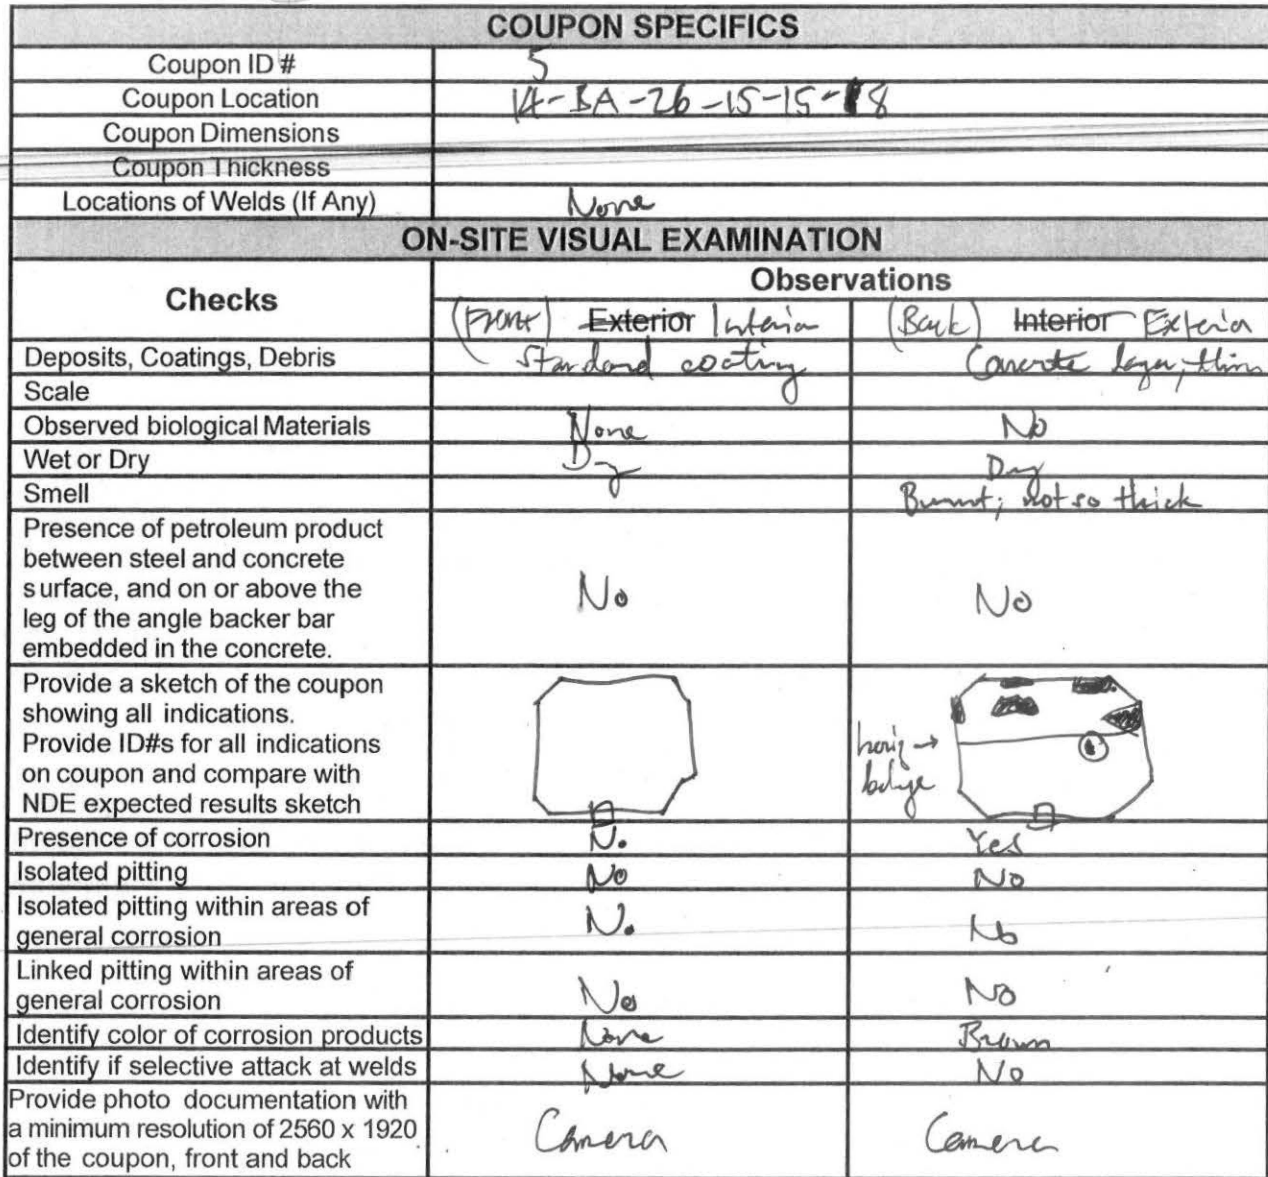 COUPON SPECIFICS
Coupon ID # 5
Coupon Location 14-BA-26-15-15-18
Coupon Dimensions
Coupon Thickness
Locations of Welds (If Any) None
ON-SITE VISUAL EXAMINATION
Checks
Observations
(Front) Exterior Interior (Back) Interior Exterior
Deposits, Coatings, Debris Standard coating Concrete layer; thin
Scale
Observed biological Materials None No
Wet or Dry Dry Dry
Smell Burnt; not so thick
Presence of petroleum product
between steel and concrete
surface, and on or above the
leg of the angle backer bar
embedded in the concrete.
No No
Provide a sketch of the coupon
showing all indications.
Provide ID#s for all indications
on coupon and compare with
NDE expected results sketch
horiz →
bulge
Presence of corrosion No Yes
Isolated pitting No No
Isolated pitting within areas of
general corrosion
No No
Linked pitting within areas of
general corrosion
No No
Identify color of corrosion products None Brown
Identify if selective attack at welds None No
Provide photo documentation with
a minimum resolution of 2560 x 1920
of the coupon, front and back
Camera Camera